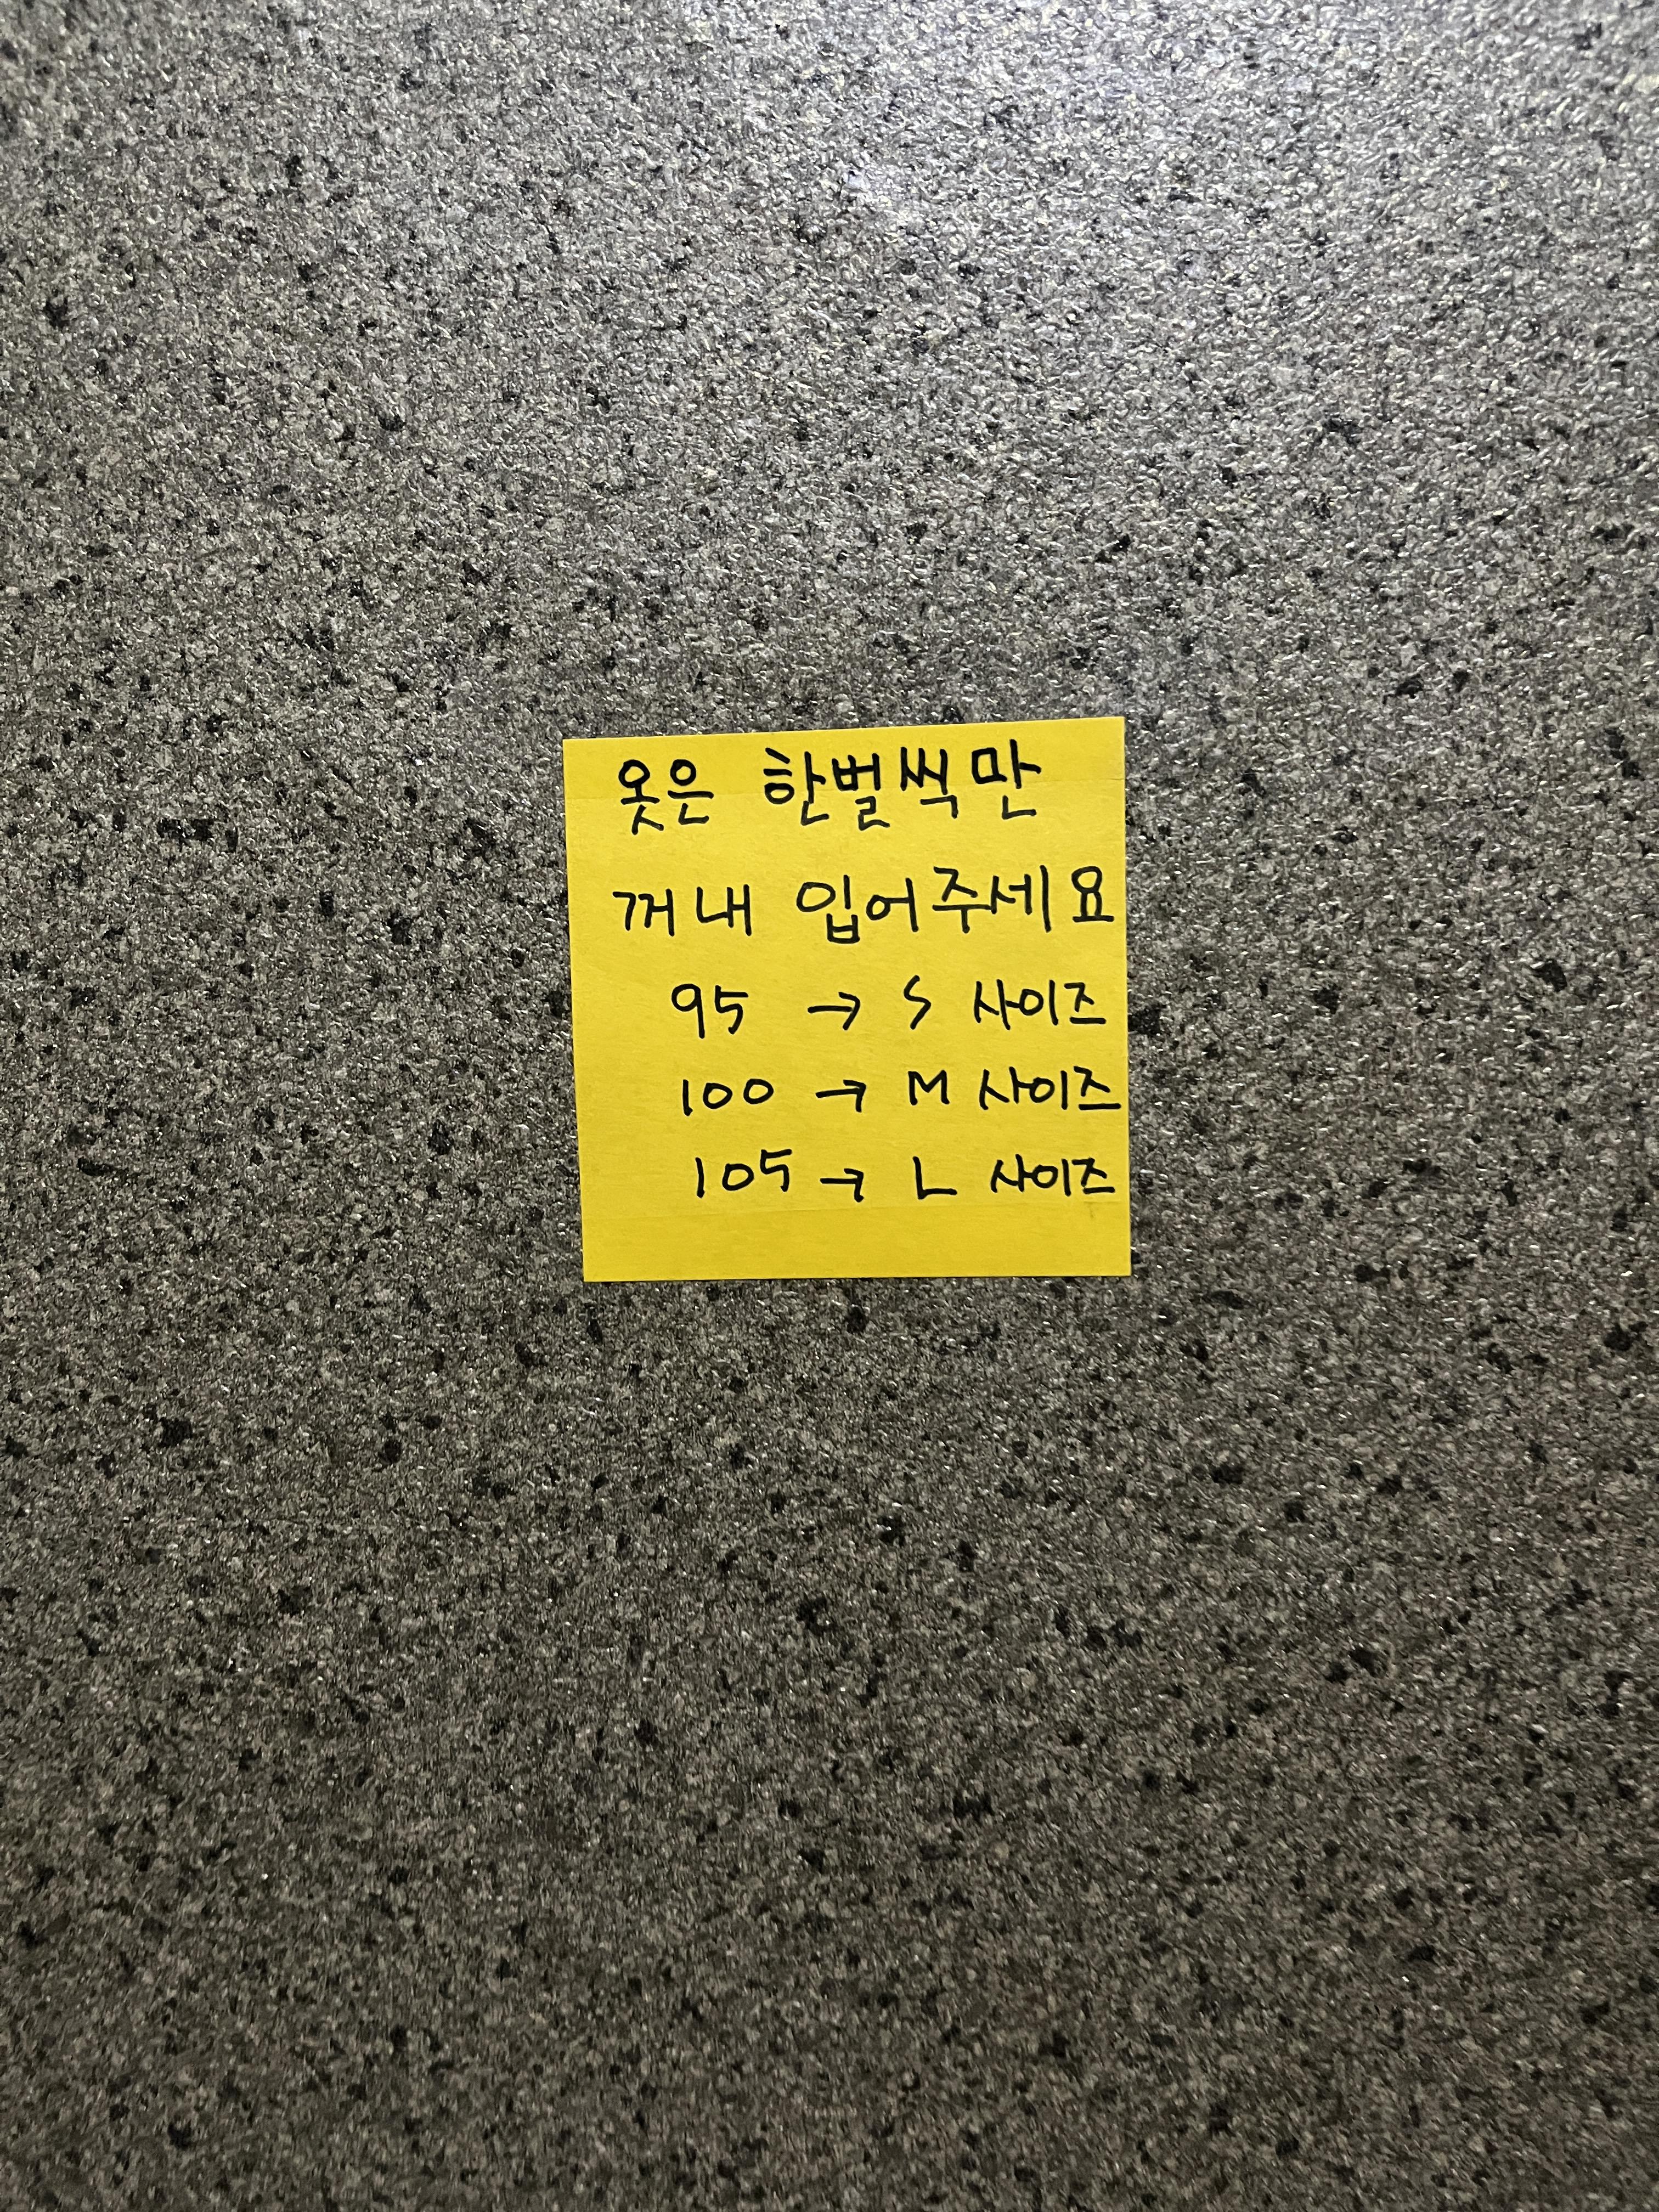 옷은 한벌씩만
꺼내 입어주세요
95 → S 사이즈
100 → M 사이즈
105 → L 사이즈